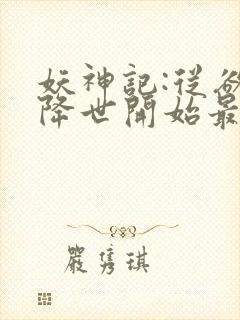 妖神記:從
降世開始最
嚴隽琪